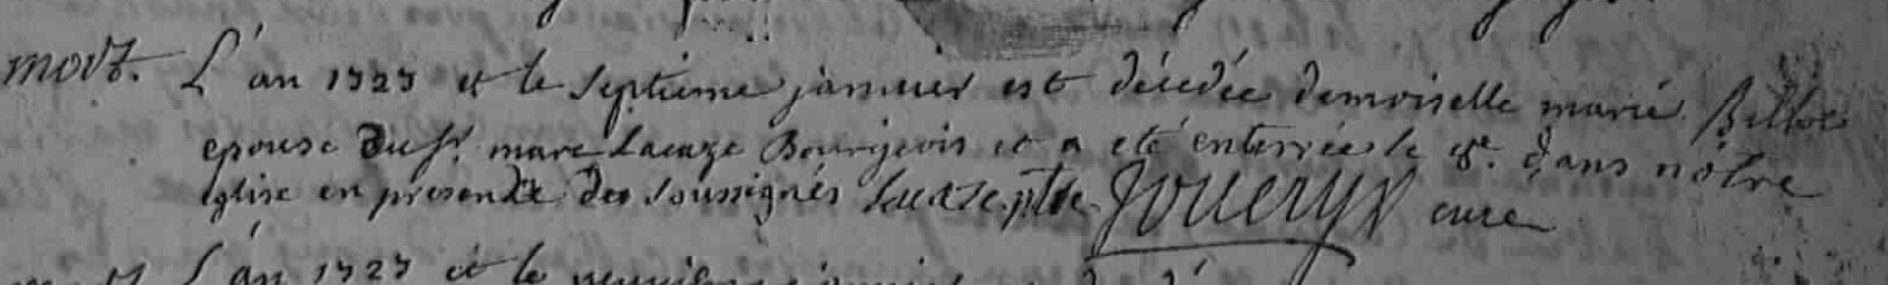 mort. L'an 1727 et le septieme janvier est décédée demoiselle marie
epouse du Sr. marc Lacaze Bourgeois et a eté enterrée le 8e. dans nôtre
eglise en presence des soussignés Lacaze ptre. cure
L'an 1727 et le janvier